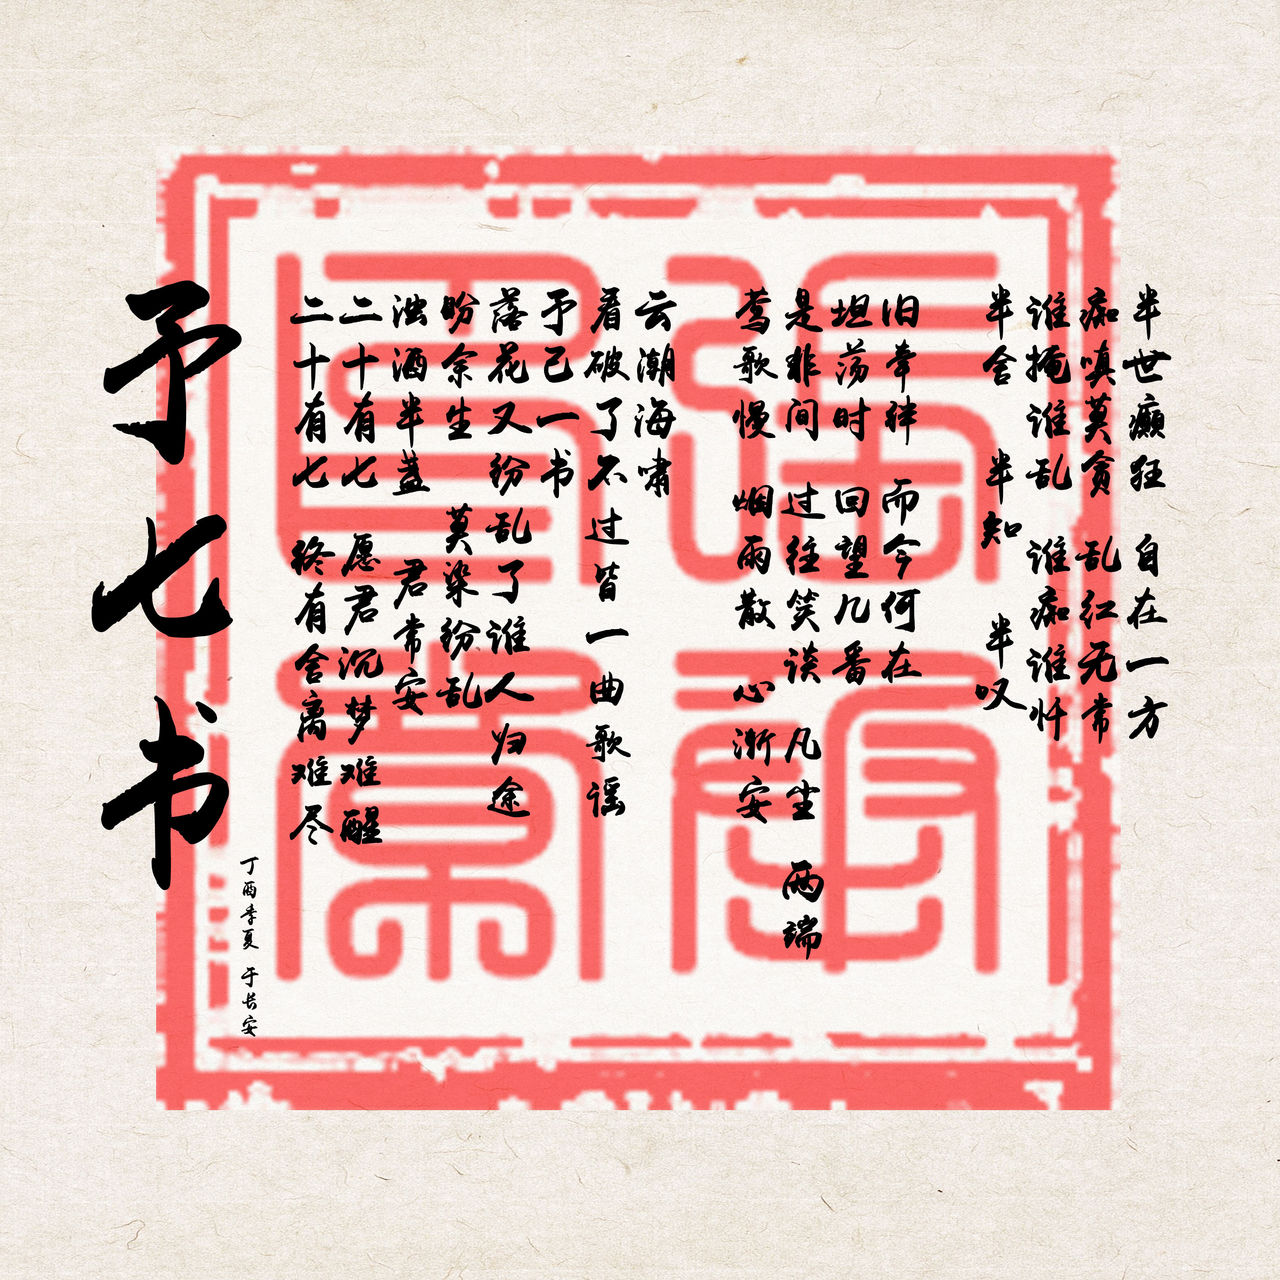 半世癫狂 自在一方
痴嗔莫贪 乱红无常
谁掩谁乱 谁痴谁忏
半舍 半知 半叹
旧牵绊 而今何在
坦荡时 回望几番
是非间 过往笑谈 凡尘 两端
莺歌慢 烟雨散 心渐安
云潮海啸
看破了不过皆一曲歌谣
予己一书
落花又纷乱了谁人归途
盼余生 莫染纷乱
浊酒半盏 君常安
二十有七 愿君沉梦难醒
二十有七 终有舍离难尽
予七书
丁酉季夏 于长安